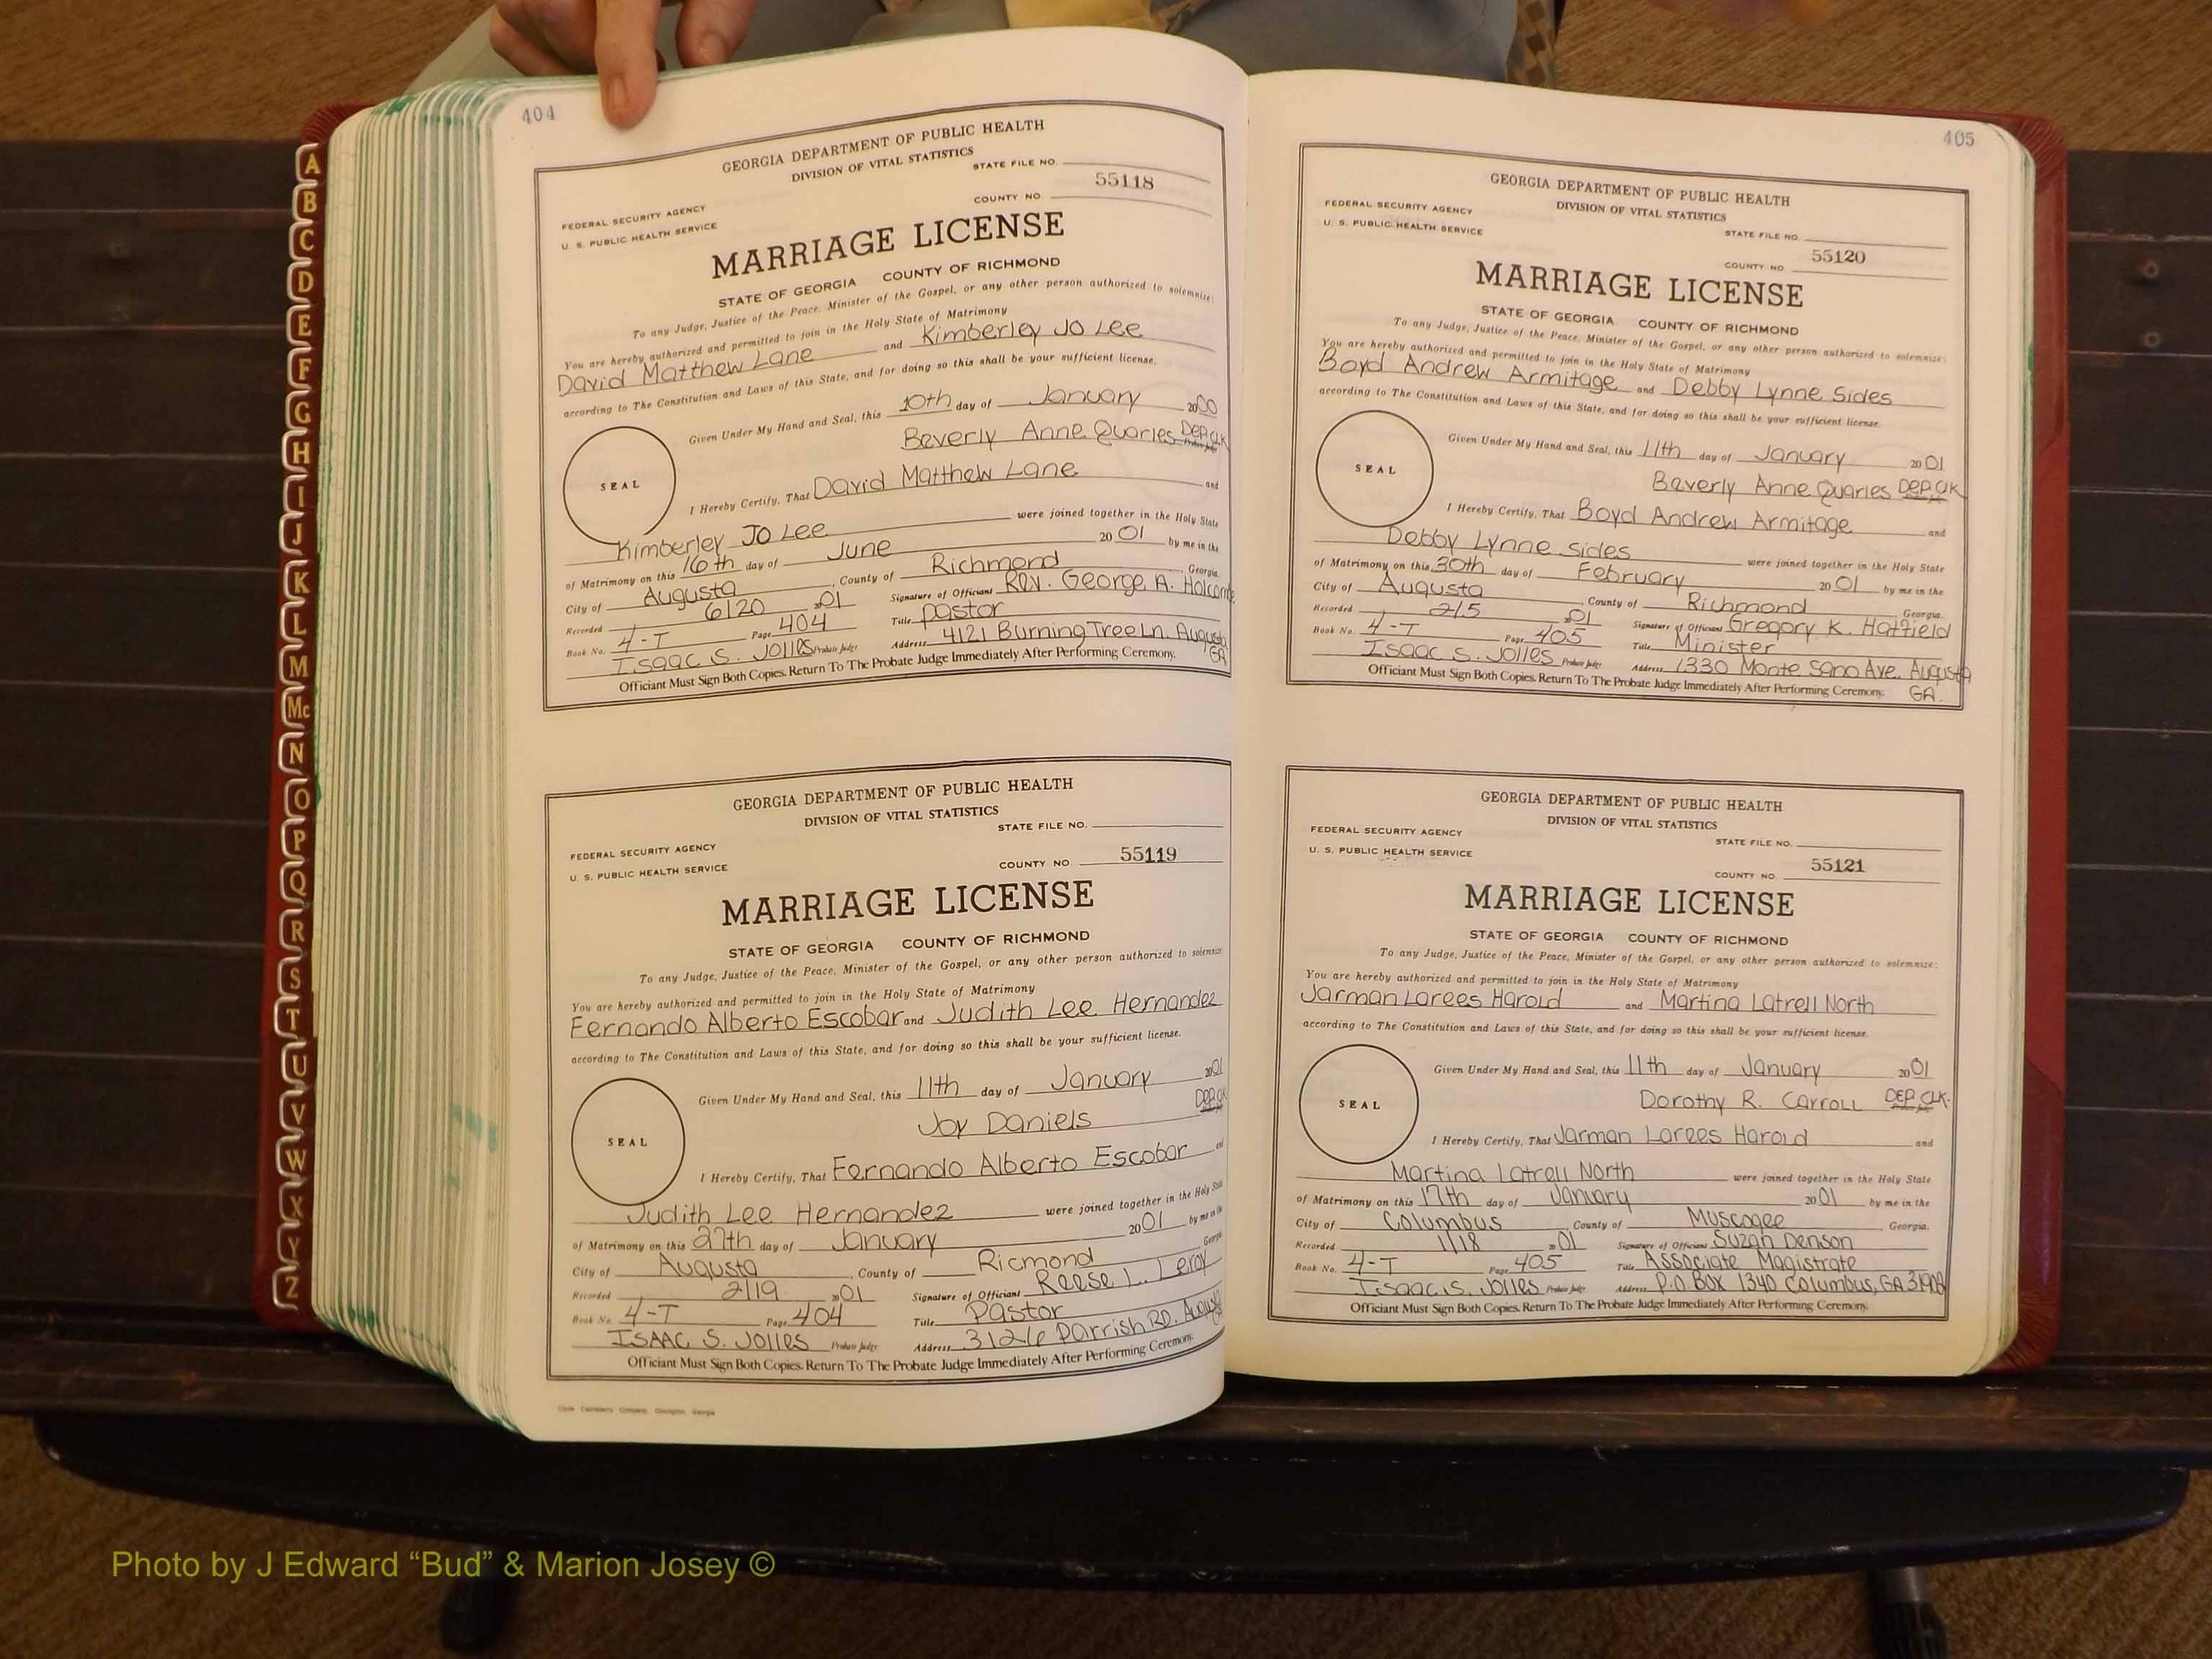 404
GEORGIA DEPARTMENT OF PUBLIC HEALTH
DIVISION OF VITAL STATISTICS
STATE FILE NO.
55118
COUNTY NO
FEDERAL SECURITY AGENCY
U. S. PUBLIC HEALTH SERVICE
MARRIAGE LICENSE
STATE OF GEORGIA COUNTY OF RICHMOND
To any Judge, Justice of the Peace, Minister of the Gospel, or any other person authorized to solemnize:
You are hereby authorized and permitted to join in the Holy State of Matrimony
David Matthew Lane and Kimberley Jo Lee
according to The Constitution and Laws of this State, and for doing so this shall be your sufficient license.
Given Under My Hand and Seal, this 10th day of January 2000
Beverly Anne Quarles DEP. CLK
SEAL
I Hereby Certify, That David Matthew Lane and
Kimberley Jo Lee were joined together in the Holy State
of Matrimony on this 16th day of June 20 01 by me in the
City of Augusta, County of Richmond, Georgia.
Recorded 6/20 2001 Signature of Officiant Rev. George A. Holcombe
Book No. 4-T Page 404 Title Pastor
Isaac S. Jolles Probate Judge Address 4121 Burning Tree Ln. Augusta GA
Officiant Must Sign Both Copies. Return To The Probate Judge Immediately After Performing Ceremony.
GEORGIA DEPARTMENT OF PUBLIC HEALTH
DIVISION OF VITAL STATISTICS
STATE FILE NO.
FEDERAL SECURITY AGENCY
U. S. PUBLIC HEALTH SERVICE
COUNTY NO. 55119
MARRIAGE LICENSE
STATE OF GEORGIA COUNTY OF RICHMOND
To any Judge, Justice of the Peace, Minister of the Gospel, or any other person authorized to solemnize
You are hereby authorized and permitted to join in the Holy State of Matrimony
Fernando Alberto Escobar and Judith Lee Hernandez
according to The Constitution and Laws of this State, and for doing so this shall be your sufficient license.
Given Under My Hand and Seal, this 11th day of January 2001
Joy Daniels DEP. CLK
SEAL
I Hereby Certify, That Fernando Alberto Escobar and
Judith Lee Hernandez were joined together in the Holy State
of Matrimony on this 27th day of January 2001 by me in the
City of Augusta, County of Ricmond Georgia
Recorded 2/19 2001 Signature of Officiant Reese L. Leroy
Book No. 4-T Page 404 Title Pastor
ISAAC S. Jolles Probate Judge Address 3126 Parrish RD. Augusta GA
Officiant Must Sign Both Copies. Return To The Probate Judge Immediately After Performing Ceremony.
405
GEORGIA DEPARTMENT OF PUBLIC HEALTH
DIVISION OF VITAL STATISTICS
FEDERAL SECURITY AGENCY
U. S. PUBLIC HEALTH SERVICE
STATE FILE NO.
COUNTY NO 55120
MARRIAGE LICENSE
STATE OF GEORGIA COUNTY OF RICHMOND
To any Judge, Justice of the Peace, Minister of the Gospel, or any other person authorized to solemnize:
You are hereby authorized and permitted to join in the Holy State of Matrimony
Boyd Andrew Armitage and Debby Lynne Sides
according to The Constitution and Laws of this State, and for doing so this shall be your sufficient license.
Given Under My Hand and Seal, this 11th day of January 2001
Beverly Anne Quarles DEP. CLK
SEAL
I Hereby Certify, That Boyd Andrew Armitage and
Debby Lynne Sides were joined together in the Holy State
of Matrimony on this 30th day of February 2001 by me in the
City of Augusta, County of Richmond, Georgia.
Recorded 2/5 2001 Signature of Officiant Gregory K. Hatfield
Book No. 4-T Page 405 Title Minister
Isaac S. Jolles Probate Judge Address 1330 Monte Sano Ave. Augusta GA.
Officiant Must Sign Both Copies. Return To The Probate Judge Immediately After Performing Ceremony.
GEORGIA DEPARTMENT OF PUBLIC HEALTH
DIVISION OF VITAL STATISTICS
FEDERAL SECURITY AGENCY
U. S. PUBLIC HEALTH SERVICE
STATE FILE NO.
COUNTY NO. 55121
MARRIAGE LICENSE
STATE OF GEORGIA COUNTY OF RICHMOND
To any Judge, Justice of the Peace, Minister of the Gospel, or any other person authorized to solemnize:
You are hereby authorized and permitted to join in the Holy State of Matrimony
Jarman Larees Harold and Martina Latrell North
according to The Constitution and Laws of this State, and for doing so this shall be your sufficient license.
Given Under My Hand and Seal, this 11th day of January 2001
Dorothy R. Carroll DEP. CLK.
SEAL
I Hereby Certify, That Jarman Larees Harold and
Martina Latrell North were joined together in the Holy State
of Matrimony on this 17th day of January 2001 by me in the
City of Columbus, County of Muscogee, Georgia.
Recorded 1/18 2001 Signature of Officiant Suzan Denson
Book No. 4-T Page 405 Title Associate Magistrate
Isaac S. Jolles Probate Judge Address P.O. Box 1340 Columbus, GA 31902
Officiant Must Sign Both Copies. Return To The Probate Judge Immediately After Performing Ceremony.
A
B
C
D
E
F
G
H
I
J
K
L
M
Mc
N
O
P
Q
R
S
T
U
V
W
X
Y
Z
Photo by J Edward “Bud” & Marion Josey ©